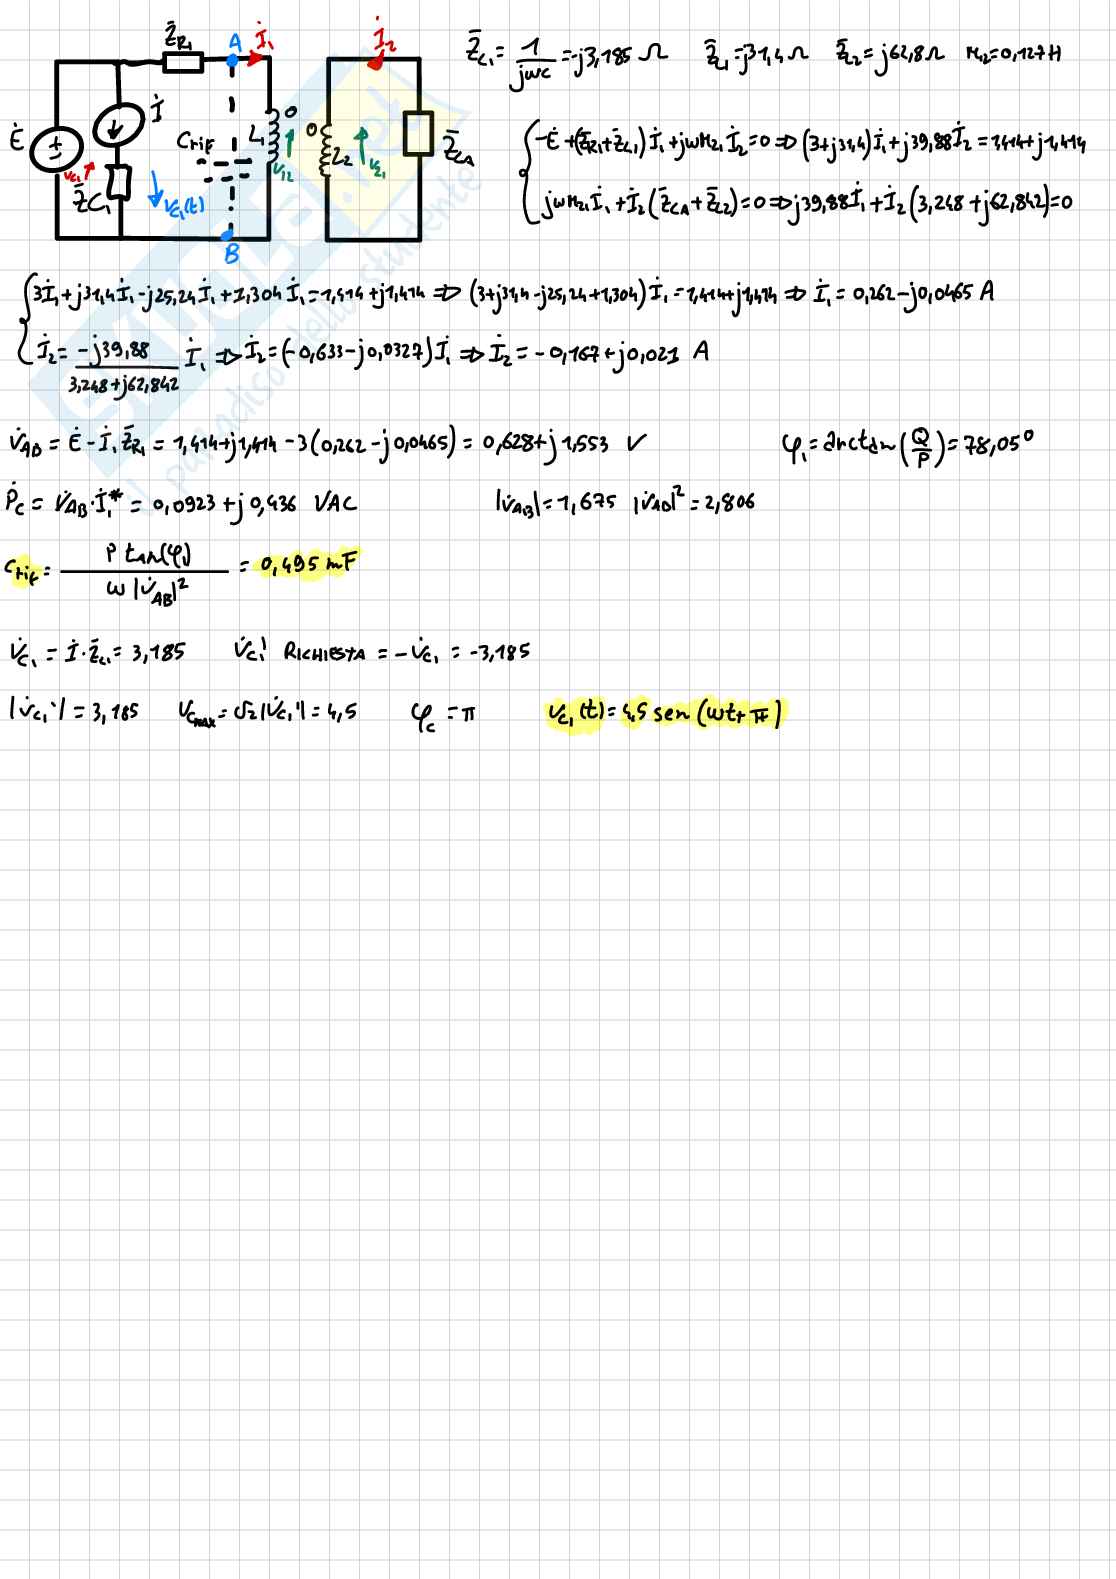 Z̄R₁ A İ₁ İ₂
Ė İ Crif L₁ V₁₂ L₂ V₂₁ Z̄CA
VC₁ Z̄C₁ VC₁(t)
B
Z̄C₁ = 1/jωC = -j3,185 Ω Z̄L₁ = j31,4 Ω Z̄L₂ = j62,8 Ω M₁₂=0,127 H
-Ė + (Z̄R₁+Z̄L₁) İ₁ + jωM₂₁ İ₂ = 0 ⇒ (3+j31,4) İ₁ + j39,88 İ₂ = 1,414+j1,414
jωM₂₁ İ₁ + İ₂ (Z̄CA + Z̄L₂) = 0 ⇒ j39,88 İ₁ + İ₂ (3,248 + j62,842) = 0
3İ₁ + j31,4 İ₁ - j25,24 İ₁ + 1,304 İ₁ = 1,414 + j1,414 ⇒ (3+j31,4 - j25,24 + 1,304) İ₁ = 1,414+j1,414 ⇒ İ₁ = 0,262 - j0,0465 A
İ₂ = -j39,88/3,248+j62,842 İ₁ ⇒ İ₂ = (-0,633 - j0,0327) İ₁ ⇒ İ₂ = -0,167 + j0,021 A
V̇AB = Ė - İ₁ Z̄R₁ = 1,414+j1,414 - 3(0,262 - j0,0465) = 0,628 + j1,553 V φ₁ = arctan(Q/P) = 78,05°
Ṗc = V̇AB · İ₁* = 0,0923 + j0,436 VAC |V̇AB| = 1,675 |V̇AB|² = 2,806
Crif = P tan(φ₁)/ω |V̇AB|² = 0,495 mF
V̇C₁ = İ · Z̄C₁ = 3,185 V̇C₁' RICHIESTA = -V̇C₁ = -3,185
|V̇C₁'| = 3,185 VCmax = √2 |V̇C₁'| = 4,5 φc = π VC₁(t) = 4,5 sen(ωt + π)